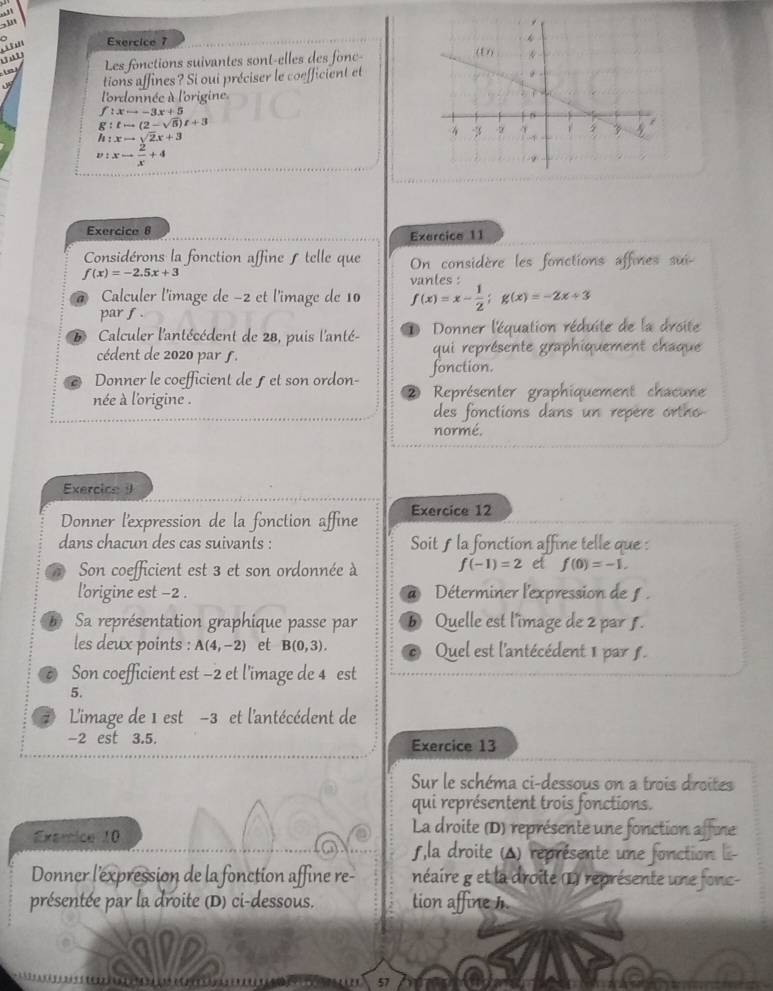 Exercice 7
Les fonctions suivantes sont-elles des fonc-
tions affines? Si oui préciser le coefficient et
l'ordonnée à l'origine.
f : x → -3x + 5
g : t → (2 - √5)t + 3
h : x → √2x + 3
v : x → 2/x + 4
Exercice 8
Considérons la fonction affine f telle que
f(x) = -2.5x + 3
a Calculer l'image de -2 et l'image de 10
par f.
b Calculer l'antécédent de 28, puis l'anté-
cédent de 2020 par f.
c Donner le coefficient de f et son ordon-
née à l'origine.
Exercice 9
Donner l'expression de la fonction affine
dans chacun des cas suivants :
Son coefficient est 3 et son ordonnée à
l'origine est -2.
b Sa représentation graphique passe par
les deux points : A(4,-2) et B(0,3).
c Son coefficient est -2 et l'image de 4 est
5.
L'image de 1 est -3 et l'antécédent de
-2 est 3.5.
Exercice 10
Donner l'expression de la fonction affine re-
présentée par la droite (D) ci-dessous.
-4 -3 -2 -1 1 2 3
Exercice 11
On considère les fonctions affines sui-
vantes :
f(x) = x - 1/2 ; g(x) = -2x + 3
1 Donner l'équation réduite de la droite
qui représente graphiquement chaque
fonction.
2 Représenter graphiquement chacune
des fonctions dans un repère ortho-
normé.
Exercice 12
Soit f la fonction affine telle que :
f(-1) = 2 et f(0) = -1.
a Déterminer l'expression de f.
b Quelle est l'image de 2 par f.
c Quel est l'antécédent 1 par f.
Exercice 13
Sur le schéma ci-dessous on a trois droites
qui représentent trois fonctions.
La droite (D) représente une fonction affine
f, la droite (Δ) représente une fonction li-
néaire g et la droite (L) représente une fonc-
tion affine h.
57